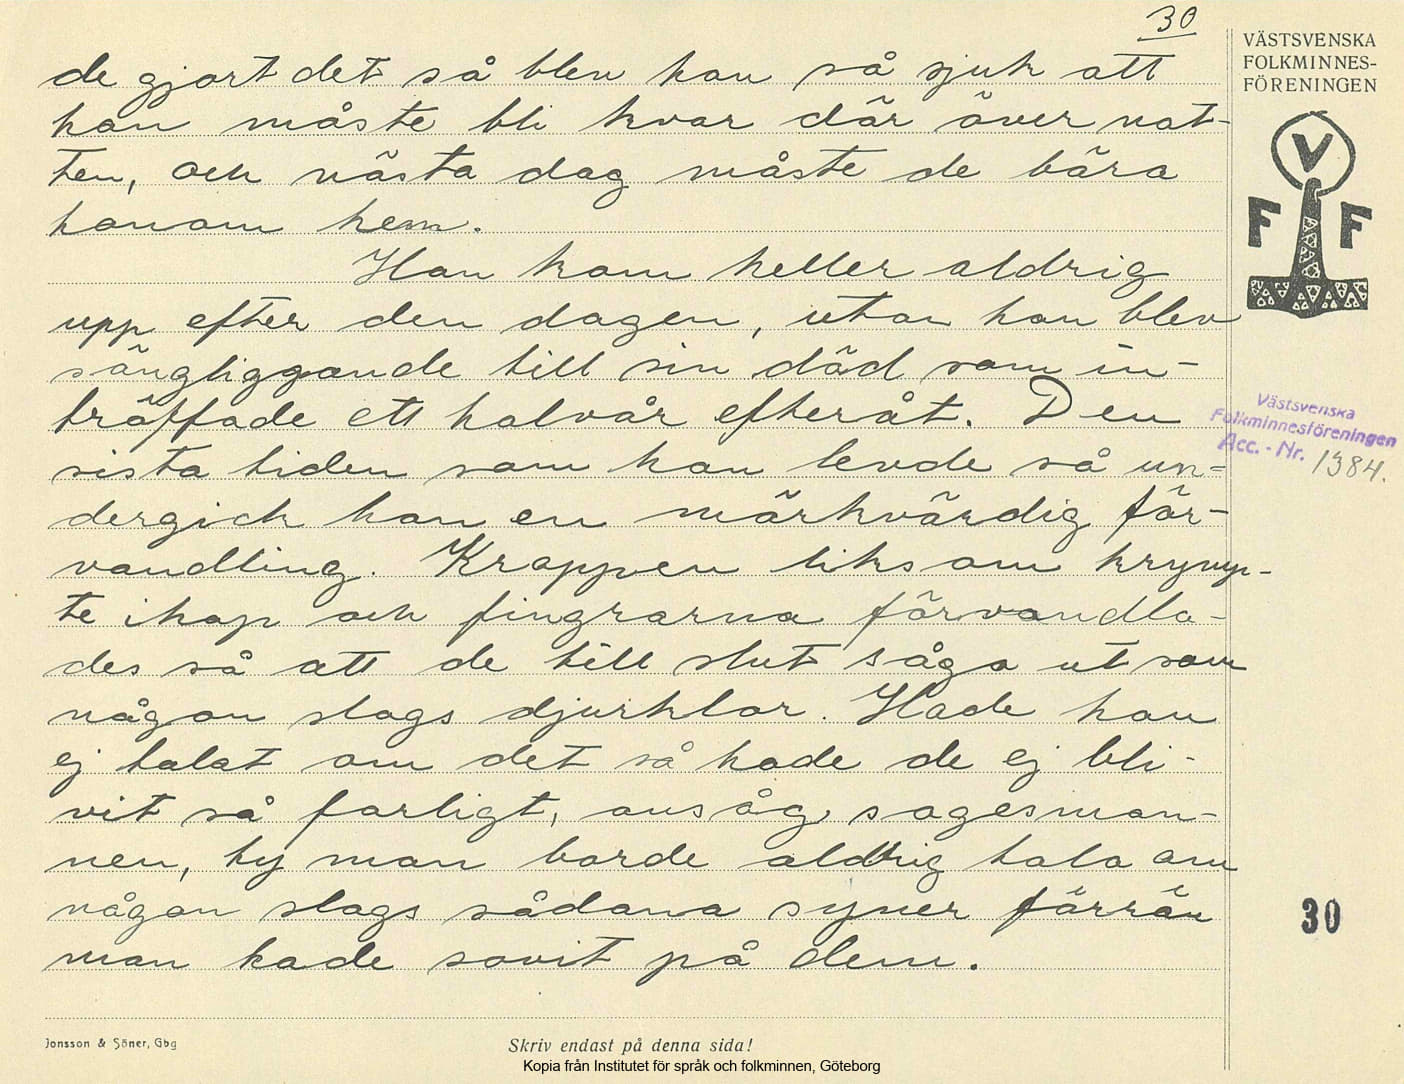 30
VÄSTSVENSKA
FOLKMINNES-
FÖRENINGEN
V
F F
de gjort det så blev han så sjuk att
han måste bli kvar där över nat-
ten, och nästa dag måste de bära
honom hem.
Han kom heller aldrig
upp efter den dagen, utan han blev
sängliggande till sin död som in-
träffade ett halvår efteråt. Den
sista tiden som han levde så un-
dergick han en märkvärdig för-
vandling. Kroppen liksom krymp-
te ihop och fingrarna förvandla-
des så att de till slut såga ut som
någon slags djurklor. Hade han
ej talat om det så hade de ej bli-
vit så farligt, ansåg sagesman-
nen, ty man borde aldrig tala om
någon slags sådana syner förrän
man hade sovit på dem.
Västsvenska
Folkminnesföreningen
Acc. - Nr. 1384.
30
Jonsson & Söner, Gbg
Skriv endast på denna sida!
Kopia från Institutet för språk och folkminnen, Göteborg